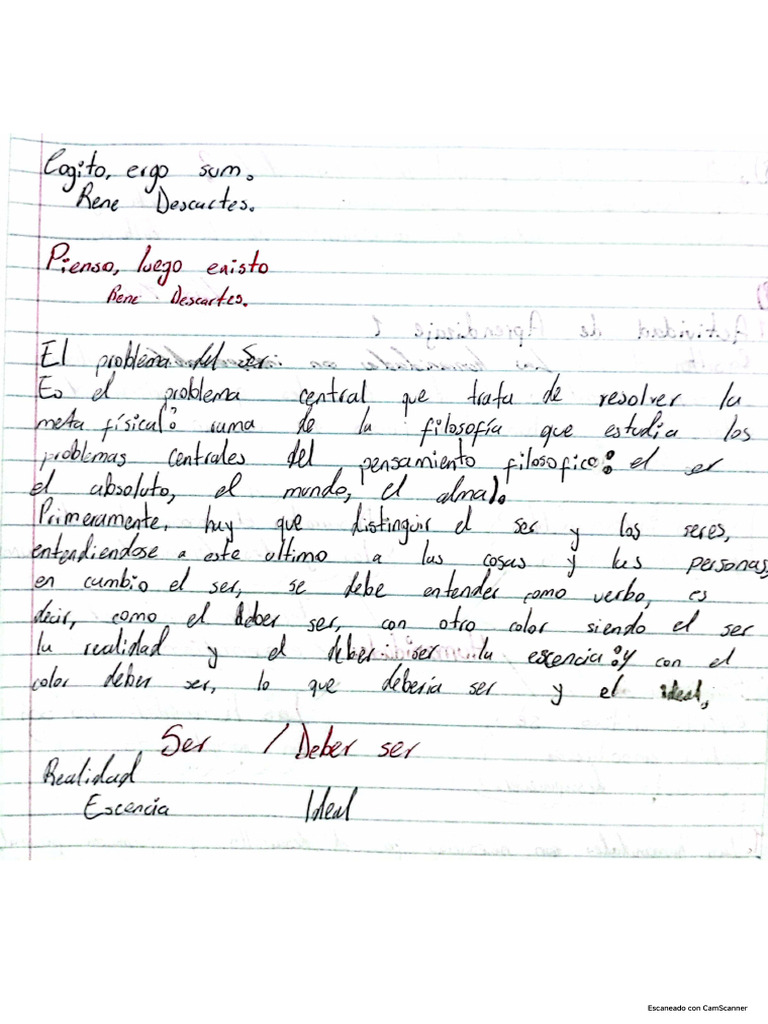 Cogito, ergo sum.
Rene Descartes.
Pienso, luego existo
Rene Descartes.
El problema del Ser
Es el problema central que trata de resolver la
metafísica: rama de la filosofía que estudia los
problemas centrales del pensamiento filosofico: el er
el absoluto, el mundo, el alma).
Primeramente, hay que distinguir el ser y los seres,
entendiendose a este ultimo a las cosas y las personas,
en cambio el ser, se debe entender como verbo, es
decir, como el deber ser, con otro color siendo el ser
la realidad y el deber ser la escencia: y con el
color deber ser, lo que deberia ser y el ideal,
Ser / Deber ser
Realidad
Escencia Ideal
Escaneado con CamScanner